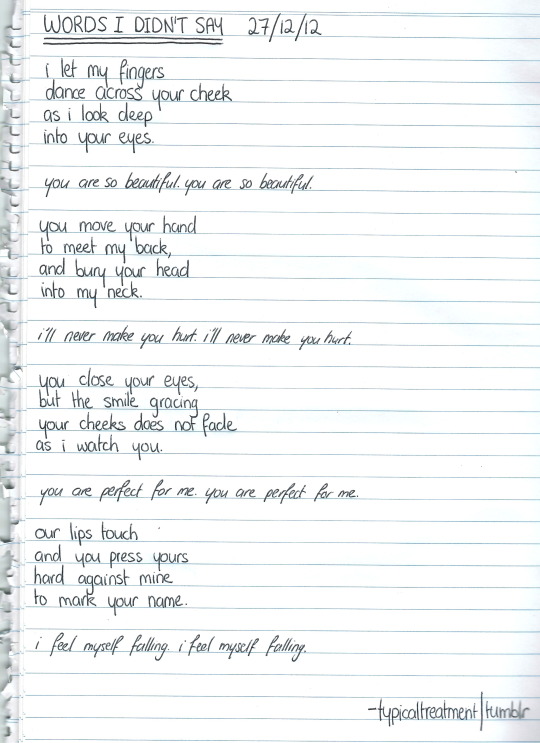 WORDS I DIDN'T SAY 27/12/12
i let my fingers
dance across your cheek
as i look deep
into your eyes.
you are so beautiful. you are so beautiful.
you move your hand
to meet my back,
and bury your head
into my neck.
i'll never make you hurt. i'll never make you hurt.
you close your eyes,
but the smile gracing
your cheeks does not fade
as i watch you.
you are perfect for me. you are perfect for me.
our lips touch
and you press yours
hard against mine
to mark your name.
i feel myself falling. i feel myself falling.
-typicaltreatment|tumblr